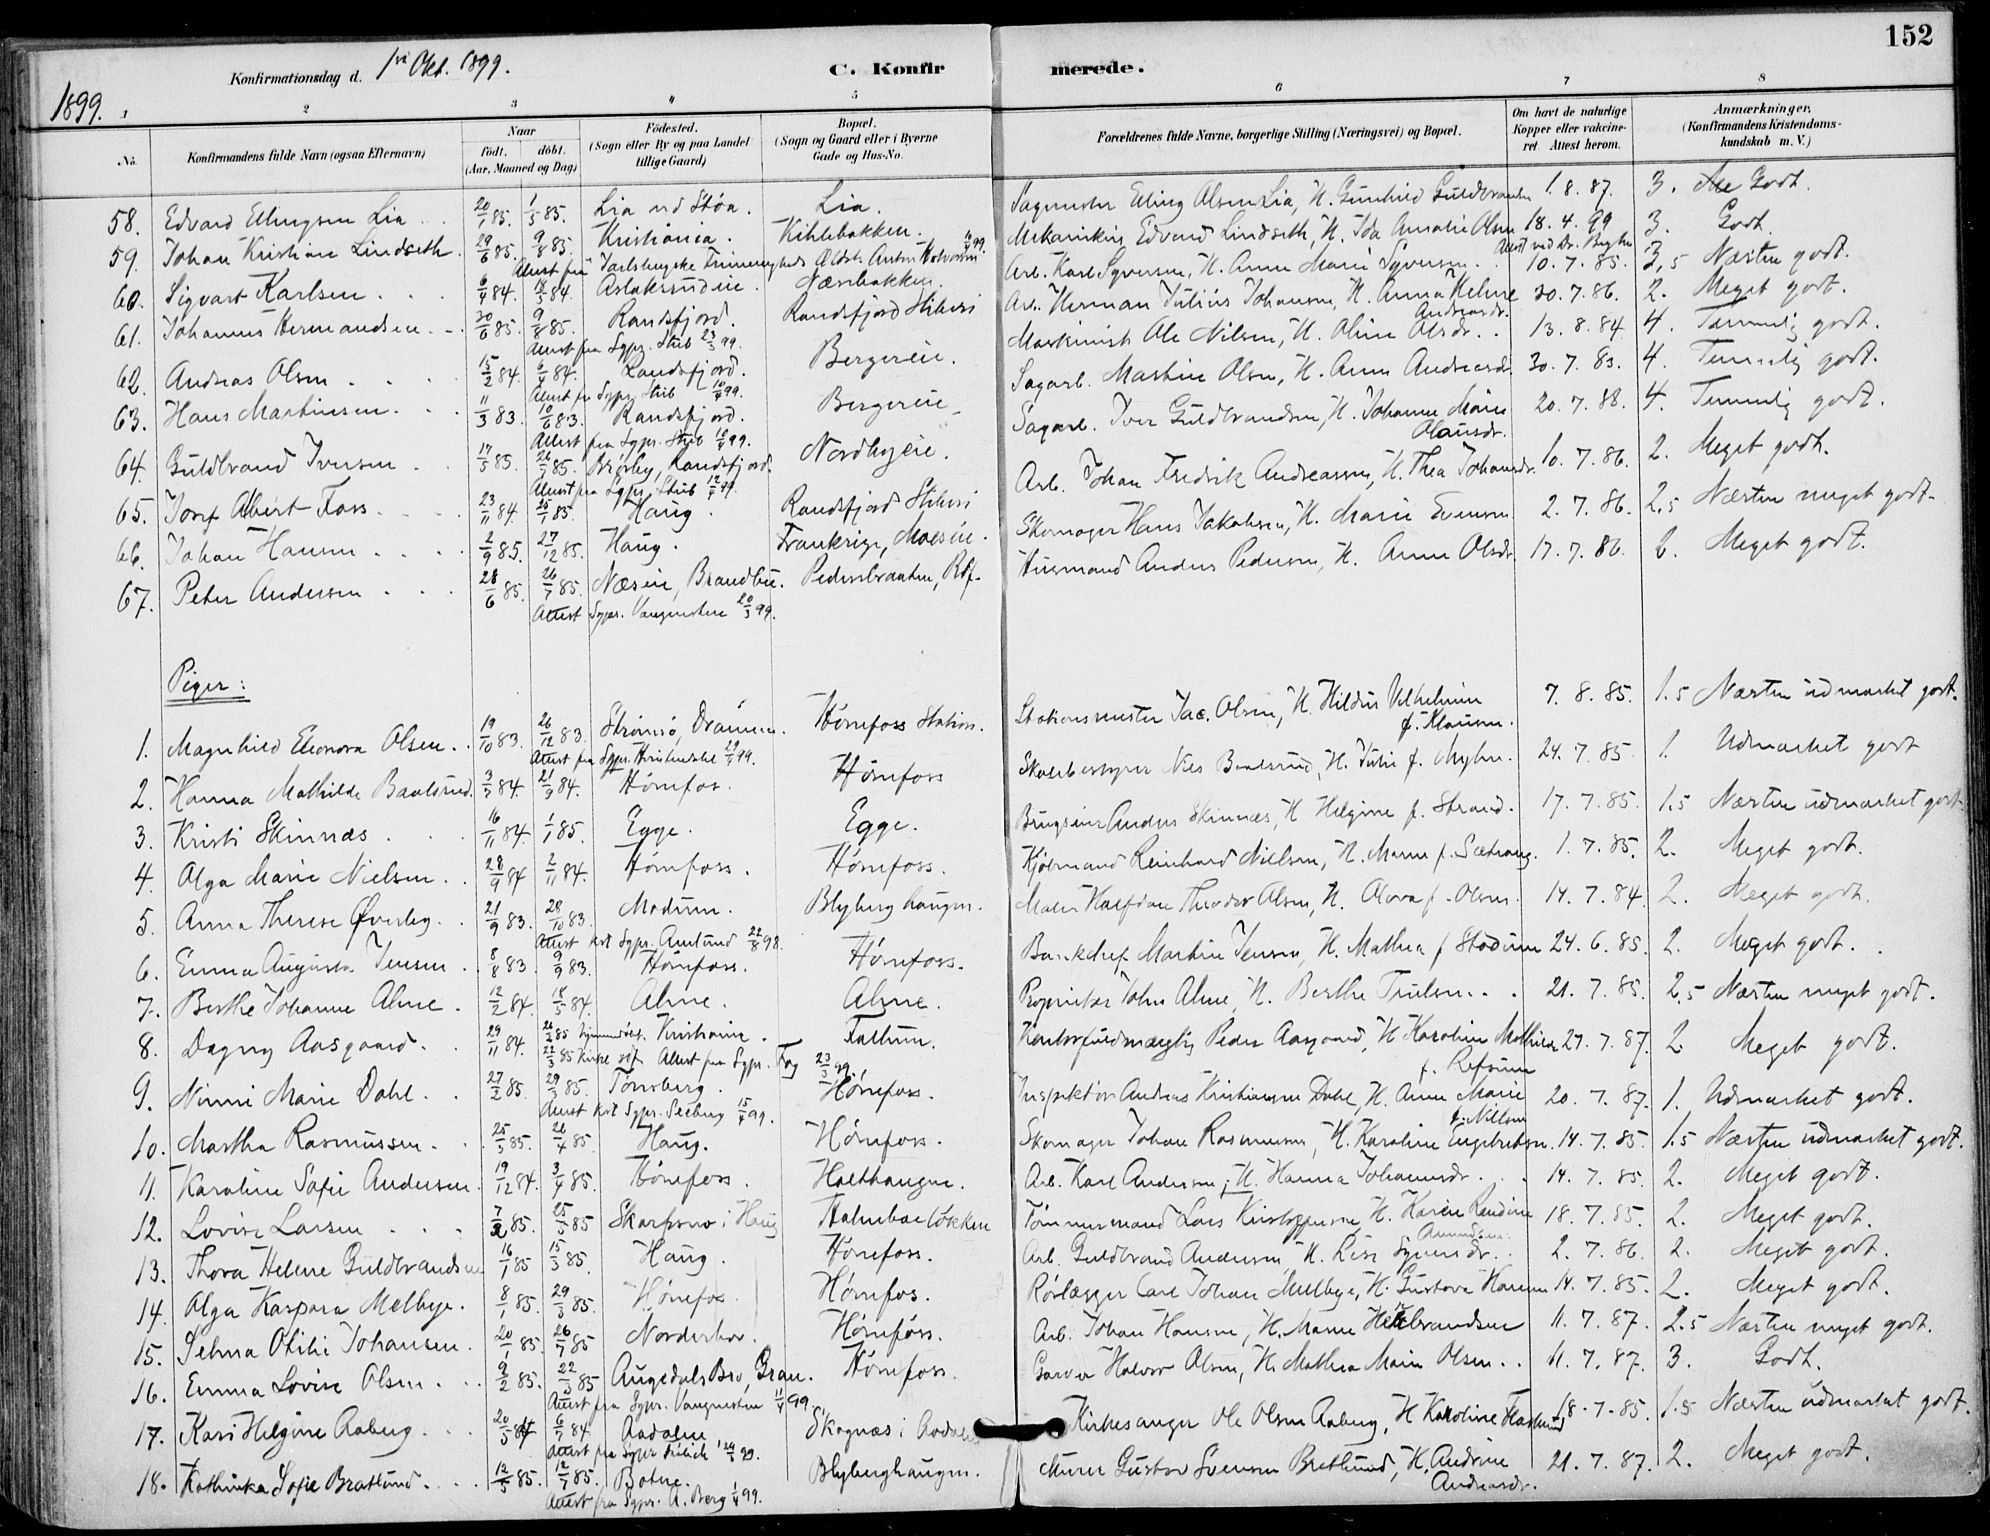 152
Konfirmationsdag d. 1ste Okt. 1899. C. Konfirmerede.
1899.
1 2 3 4 5 6 7 8
No. Konfirmandens fulde Navn (ogsaa Efternavn) Naar Født. døbt. (Aar, Maaned og Dag) Fødested. (Sogn eller By og paa Landet tillige Gaard) Bopæl. (Sogn og Gaard eller i Byerne Gade og Hus-No. Forældrenes fulde Navne, borgerlige Stilling (Næringsvei) og Bopæl. Om havt de naturlige Kopper eller vakcineret. Attest herom. Anmærkninger. (Konfirmandens Kristendomskundskab m. V.)
58. Edvard Ellingsen Lia 20/1 85. 1/5 85. Lia ved Støa. Lia. Sagmester Elling Olsen Lia, H. Gunhild Guldbrandsen 1.8.87. 3. Godt.
59. Johan Kristian Lindseth 29/6 85. 9/8 85. Kristiania. Kihlebakken. Mekanikus Edvard Lindseth, H. Ida Amalie Olsen 18.4.99 3. Godt.
60. Sigvart Karlsen 6/4 84. 18/5 84. Aslaksrudeie. Næsbakken. Arb. Karl Syversen, H. Anne Marie Syversen. 10.7.85. 3,5 Næsten godt.
61. Johannes Hermandsen 20/6 85. 9/8 85. Randsfjord. Randsfjord Sliberi Arb. Herman Julius Johansen, H. Anna Helene Andreasdr. 30.7.86. 2. Meget godt.
Attest fra Sgpr. Stub 23/3 99.
62. Andreas Olsen 15/2 84. 6/4 84. Randsfjord. Bergereie. Maskinist Ole Nilsen, H. Oline Olsdr. 13.8.84 4. Temmelig godt.
Attest fra Sgpr. Stub 10/4 99.
63. Hans Martinsen 11/3 83. 10/6 83. Randsfjord. Bergereie Sagarb. Martin Olsen, H. Anne Andreasdr. 30.7.83. 4. Temmelig godt.
Attest fra Sgpr. Stub 10/4 99.
64. Guldbrand Iversen 17/5 85. 26/7 85. Brørby, Randsfjord. Nordbyeie. Sagarb. Iver Guldbrandsen, H. Johanne Marie Olausdr. 20.7.88. 4. Temmelig godt.
Attest fra Sgpr. Stub 12/4 99.
65. Josef Albert Foss 23/11 84. 25/1 85. Haug. Randsfjord Sliberi Arb. Johan Fredrik Andreassen, H. Thea Johansdr. 10.7.86. 2. Meget godt.
66. Johan Hansen 2/9 85. 27/12 85. Haug. Frankrige, Moeseie. Skomager Hans Jakobsen, H. Marie Evensen 2.7.86. 2,5 Næsten meget godt.
67. Peter Andersen 28/6 85. 26/7 85. Næseie, Brandbu. Pedersbraaten, Rdf. Husmand Anders Pedersen, H. Anne Olsdr. 17.7.86. 2. Meget godt.
Attest Sgpr. Vangensten 20/3 99.
Piger:
1. Magnhild Eleonora Olsen 19/10 83. 26/12 83. Strømsø, Drammen. Hønefoss Station. Stationsmester Jac. Olsen, H. Hildur Vilhelmine f. Klausen. 7.8.85. 1.5 Næsten udmærket godt.
2. Hanna Mathilde Baalsrud. 3/7 84. 21/9 84. Hønefos. Hønefoss Skolebestyrer Nils Baalsrud, H. Julie f. Myhre. 24.7.85. 1. Udmærket godt
3. Kristi Skinnæs 16/11 84. 1/1 85. Egge. Egge. Brugseier Anders Skinnæs, H. Helgine f. Strand. 17.7.85. 1.5 Næsten udmærket godt
4. Olga Marie Nielsen 28/9 84 2/11 84. Hønefoss. Hønefoss. Kjøbmand Reinhard Nielsen, H. Maren f. Sætrang. 1.7.85. 2. Meget godt.
5. Anna Therese Øverby 21/9 83. 28/10 83. Modum. Blyberghaugen. Maler Halfdan Theodor Olsen, H. Olava f. Olsen. 14.7.84 2. Meget godt.
6. Emma Augusta Jensen 8/8 83. 9/9 83. Hønefoss. Hønefoss. Bankchef Martin Jensen, H. Mathea f. Stadum 24.6.85. 2. Meget godt.
7. Berthe Johanne Alme 12/2 84. 18/5 84. Alme. Alme. Proprietær John Alme, H. Berthe Trulsen. 21.7.85. 2,5 Næsten meget godt.
8. Dagny Aasgaard. 29/11 84. Kristiania. Tallum. Kontorfuldmægtig Peder Aasgaard, H. Karoline Mathilde f. Refsum 27.7.87. 2 Meget godt.
9. Ninni Marie Dahl. 27/2 85. 29/3 85. Tønsberg. Hønefoss. Inspektør Andreas Kristiansen Dahl, H. Anne Marie f. Nilsen 20.7.87. 1. Udmærket godt.
Attest kst Sgpr. Seeberg 15/4 99.
10. Martha Rasmussen 25/3 85. 26/4 85. Haug. Hønefoss. Skomager Johan Rasmussen, H. Karoline Engebretsen. 14.7.85. 1.5 Næsten udmærket godt.
11. Karoline Sofie Andersen. 19/12 84. 3/4 85. Hønefoss. Holthaugen. Arb. Karl Andersen, H. Hanna Johannesdr. 14.7.85. 2. Meget godt.
12. Lovise Larsen 7/2 85. 25/3 85 Skarpsno i Haug Halmboeløkken Tømmermand Lars Kristoffersen, H. Karen Randine Amundsen. 18.7.85. 2. Meget godt.
13. Thora Helene Guldbrandsen 16/1 85 15/3 85. Haug. Hønefoss. Arb. Guldbrand Andersen, H. Lise Syversdr. 2.7.86. 2. Meget godt.
14. Olga Kaspara Melbye. 8/1 85. 29/3 85. Hønefos. Hønefos. Rørlægger Carl Johan Melbye, H. Gustava Hansen 14.7.85. 2. Meget godt.
15. Selma Otilie Johansen. 20/1 85. 26/7 85 Norderhov. Hønefoss. Arb. Johan Hansen, H. Maren Hellebrandsen 11.7.87. 2.5 Næsten meget godt.
16. Emma Lovise Olsen 9/2 85. 22/3 85 Augedals Bro, Gran. Hønefoss. Garver Halvor Olsen, H. Mathea Marie Olsen. 11.7.87. 3. Godt.
Attest fra Sgpr. Vangensten 11/4 99.
17. Kari Helgine Aaberg. 20/5 84 6/7 84. Aadalen Skagnæs i Aadalen Kirkesanger Ole Olsen Aaberg, H. Karoline 18.7.85. 1.5 Næsten udmærket godt.
18. Kathinka Sofie Bratlund. 12/5 85. 12/7 85. Botne. Blyberghaugen. Murer Gustav Svensen Bratlund, H. Andrine Andreasdr. 21.7.87. 2. Meget godt.
Attest fra Sgpr. A. Berg 1/4 99.